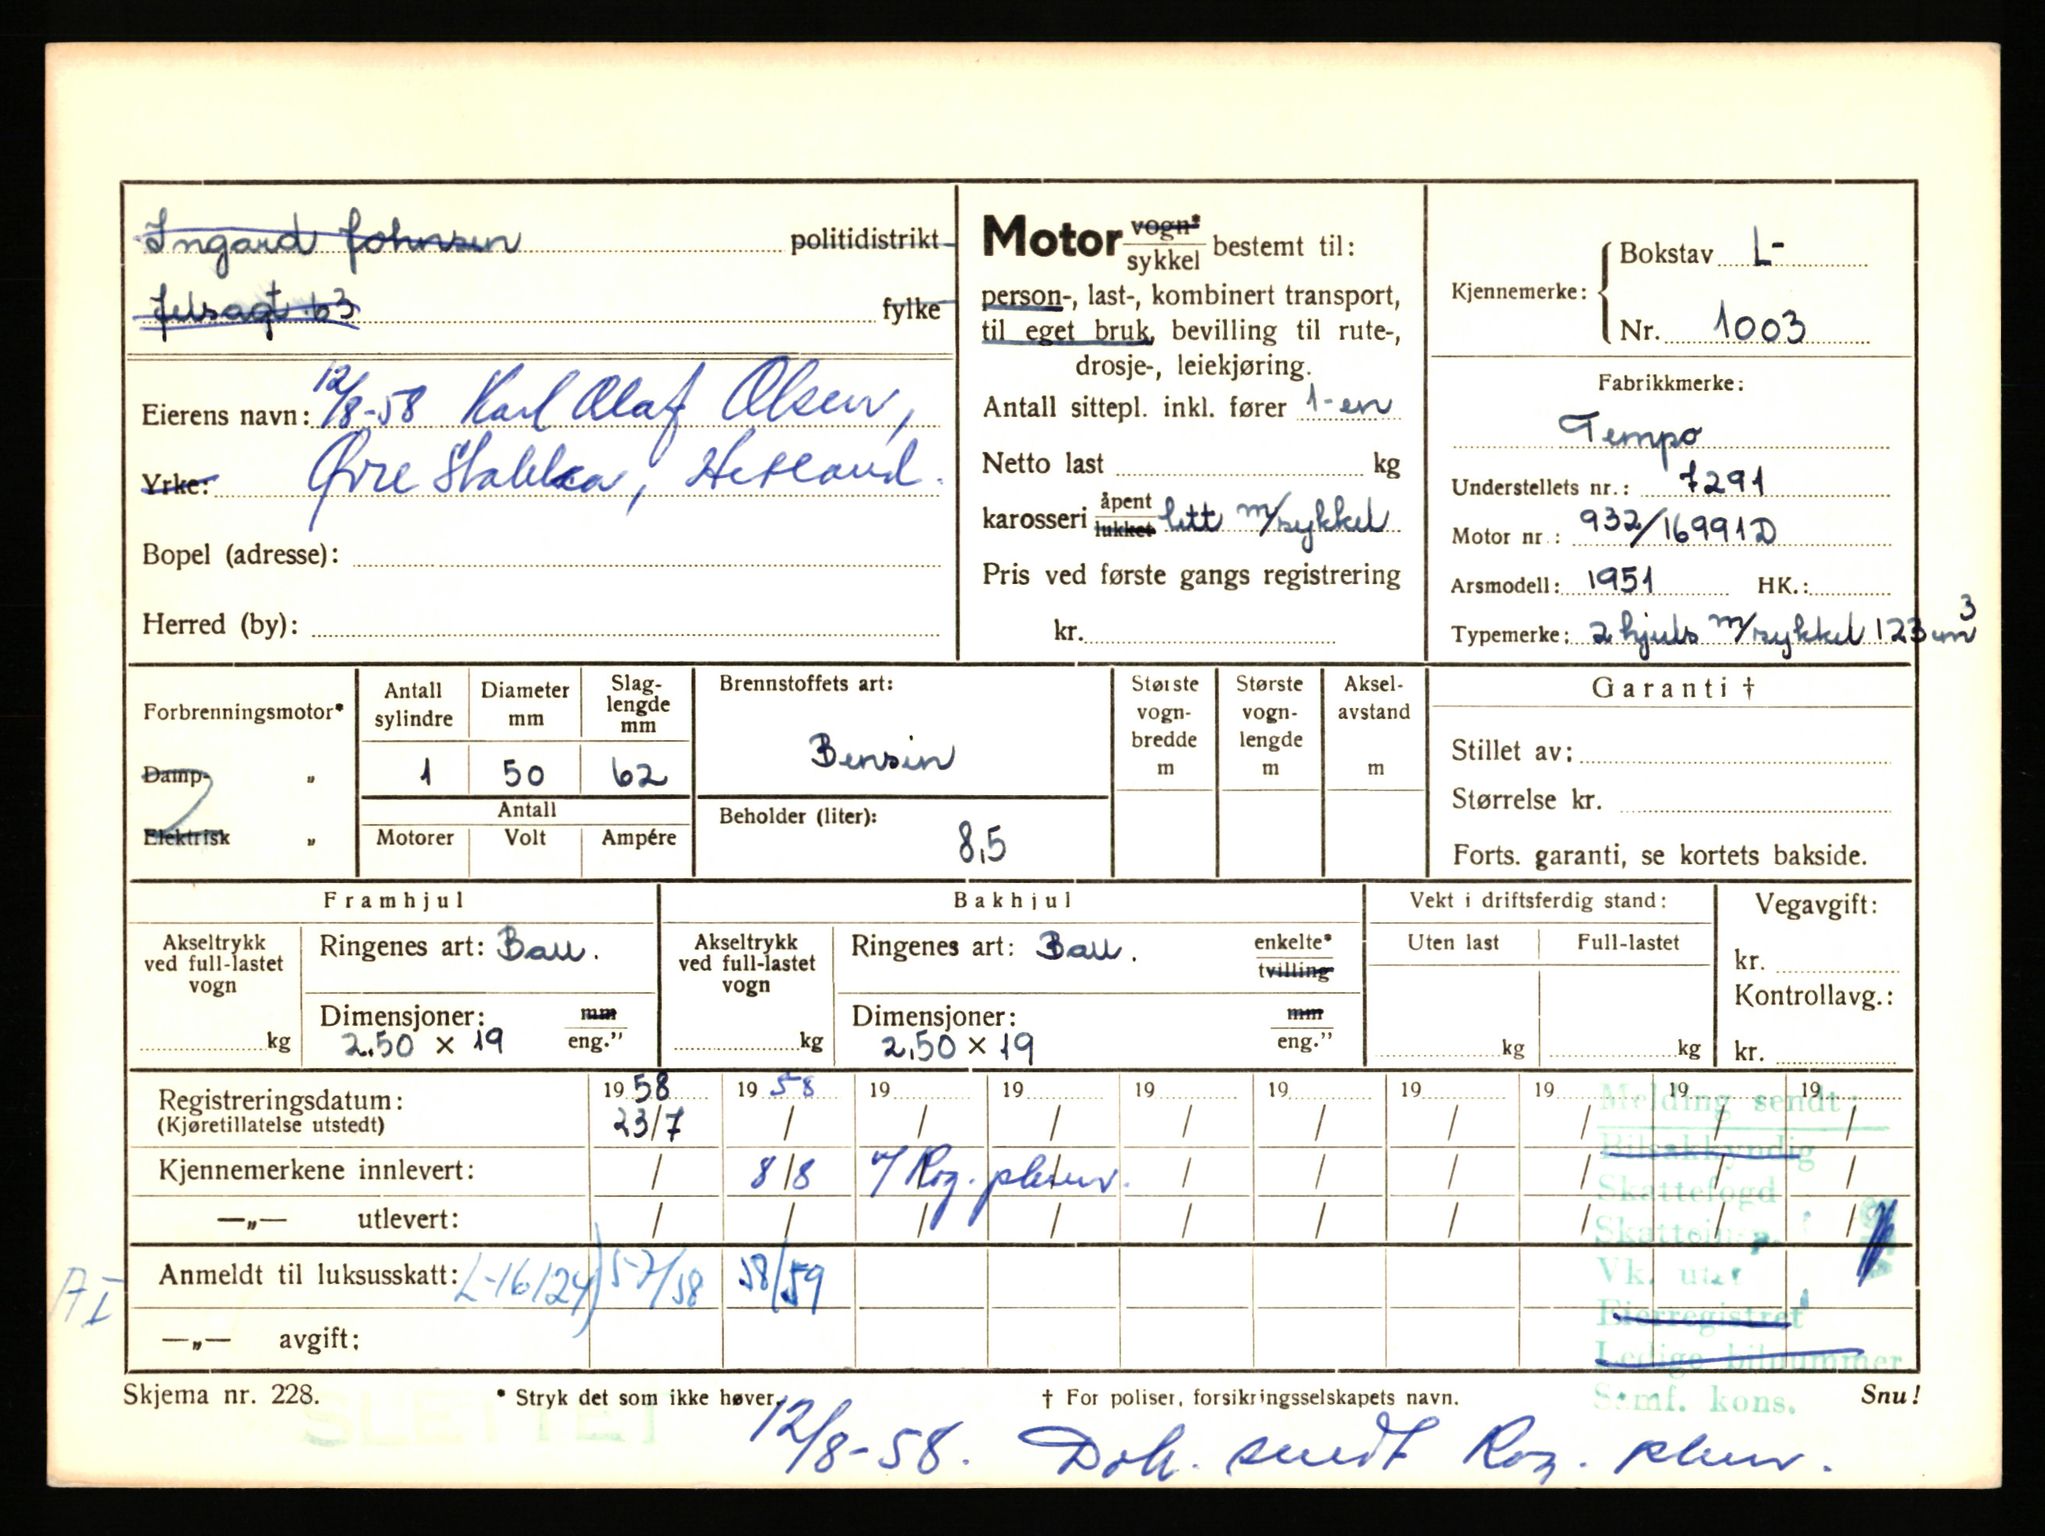 Ingard Johnsen politidistrikt
Jelsagt. 63 fylke
Eierens navn: 12/8-58 Karl Olaf Olsen,
Yrke: Øvre Stakka, Hetland.
Bopel (adresse):
Herred (by):
Motor vogn*
sykkel bestemt til:
person-, last-, kombinert transport,
til eget bruk, bevilling til rute-,
drosje-, leiekjøring.
Antall sittepl. inkl. fører 1-en
Netto last kg
karosseri åpent
lukket lett m/sykkel
Pris ved første gangs registrering
kr.
Kjennemerke: Bokstav L-
Nr. 1003
Fabrikkmerke:
Tempo
Understellets nr.: 7291
Motor nr.: 932/16991D
Årsmodell: 1951 HK.:
Typemerke: 2 hjuls m/sykkel 123 cm³
Forbrenningsmotor*
Damp- "
Elektrisk "
Antall sylindre
1
Diameter mm
50
Slag-
lengde
mm
62
Antall
Motorer Volt Ampére
Brennstoffets art:
Bensin
Beholder (liter):
8,5
Største
vogn-
bredde
m
Største
vogn-
lengde
m
Aksel-
avstand
m
Garanti †
Stillet av:
Størrelse kr.
Forts. garanti, se kortets bakside.
Framhjul
Akseltrykk
ved full-lastet
vogn
kg
Ringenes art: Ball.
Dimensjoner: mm
2.50 x 19 eng."
Bakhjul
Akseltrykk
ved full-lastet
vogn
kg
Ringenes art: Ball. enkelte*
tvilling
Dimensjoner: mm
2.50 x 19 eng."
Vekt i driftsferdig stand:
Uten last Full-lastet
kg kg
Vegavgift:
kr.
Kontrollavg.:
kr.
Registreringsdatum: 19 58 19 58 19 19 19 19 19 19 19 19
(Kjøretillatelse utstedt) 23/7 / / / / / / / / /
Kjennemerkene innlevert: / 8/8 v/ Rog. pkmr. / / / / / /
—„— utlevert: / / / / / / / / / /
Anmeldt til luksusskatt: L-16124) 57/58 58/59
AI
—„— avgift:
Melding sendt:
Bilsakkyndig
Skattefogd
Vk. utst
Eierregistret
Ledige bilnummer
Samf. kons.
Skjema nr. 228. * Stryk det som ikke høver. † For poliser, forsikringsselskapets navn. Snu!
SLETTET
12/8-58. Dok. sendt Rog. pkmr.